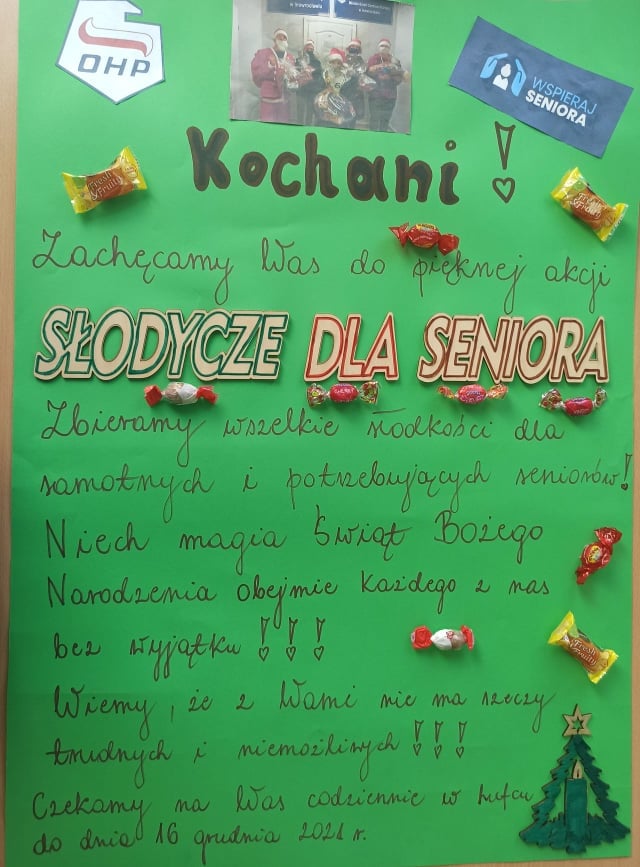 OHP
w Inowrocławiu
WSPIERAJ
SENIORA
Kochani!
Zachęcamy Was do pięknej akcji
SŁODYCZE DLA SENIORA
Zbieramy wszelkie słodkości dla
samotnych i potrzebujących seniorów!
Niech magia Świąt Bożego
Narodzenia obejmie każdego z nas
bez wyjątku!!!
Wiemy, że z Wami nie ma rzeczy
trudnych i niemożliwych!!!
Czekamy na Was codziennie w hufcu
do dnia 16 grudnia 2021 r.
Fresh
& Fruity
Fresh
& Fruity
Fresh
& Fruity